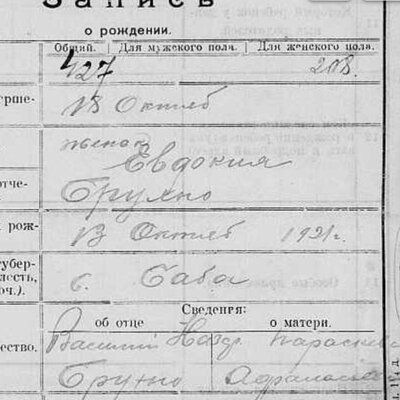 Запись
о рождении.
Общий. Для мужского пола. Для женского пола.
427 208.
18 Октяб
женск
Евдокия
Брухно
рож- 13 Октяб 1921г.
губер-
с. Саба
Сведения:
об отце о матери.
Василий Назар Параскев
Брухно Афанасьев